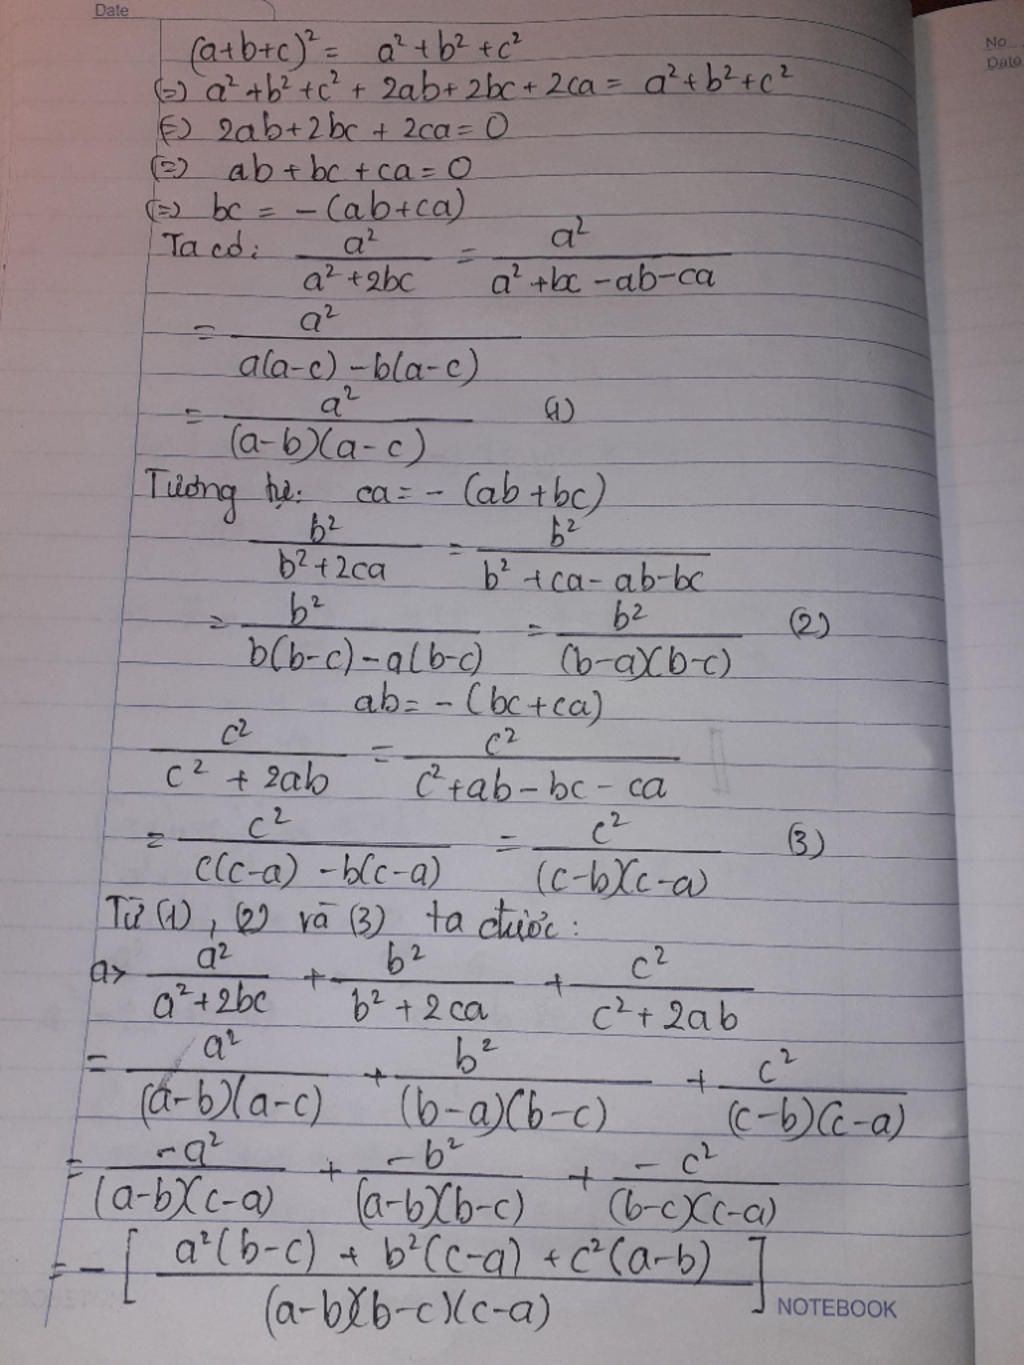 Date
No
Date
(a+b+c)² = a² + b² + c²
(=) a² + b² + c² + 2ab + 2bc + 2ca = a² + b² + c²
(=) 2ab + 2bc + 2ca = 0
(=) ab + bc + ca = 0
(=) bc = - (ab + ca)
Ta có: a² / (a² + 2bc) = a² / (a² + bc - ab - ca)
= a² / (a(a-c) - b(a-c))
= a² / ((a-b)(a-c)) (1)
Tương tự: ca = - (ab + bc)
b² / (b² + 2ca) = b² / (b² + ca - ab - bc)
= b² / (b(b-c) - a(b-c)) = b² / ((b-a)(b-c)) (2)
ab = - (bc + ca)
c² / (c² + 2ab) = c² / (c² + ab - bc - ca)
= c² / (c(c-a) - b(c-a)) = c² / ((c-b)(c-a)) (3)
Từ (1), (2) và (3) ta được:
a> a² / (a² + 2bc) + b² / (b² + 2ca) + c² / (c² + 2ab)
= a² / ((a-b)(a-c)) + b² / ((b-a)(b-c)) + c² / ((c-b)(c-a))
= -a² / ((a-b)(c-a)) + -b² / ((a-b)(b-c)) + -c² / ((b-c)(c-a))
= - [ (a²(b-c) + b²(c-a) + c²(a-b)) / ((a-b)(b-c)(c-a)) ]
NOTEBOOK